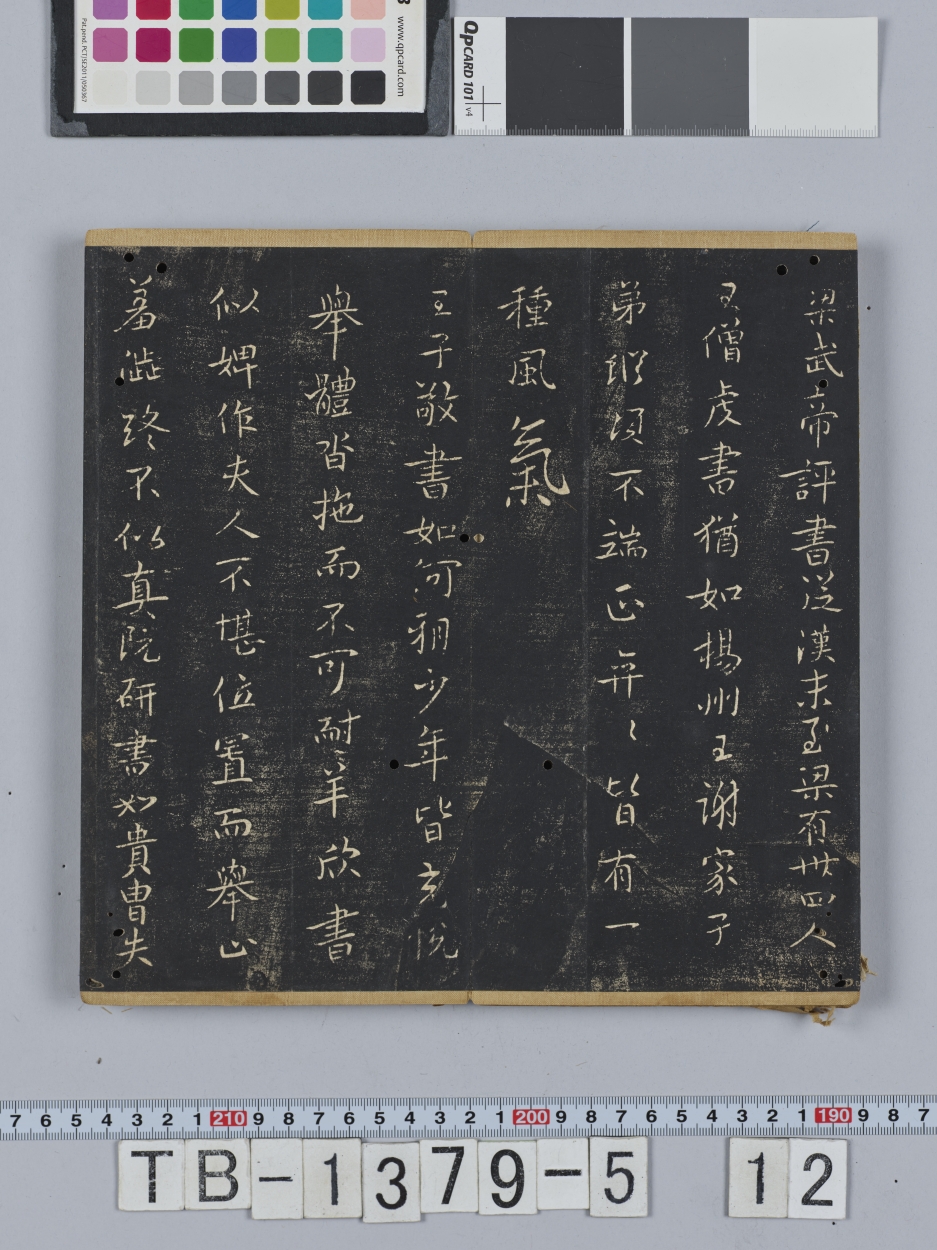 www.qpcard.com
Pat.pend. PCT/SE2011/050367
QPCARD 101 v4
梁武帝評書從漢末至梁有卅四人
王僧虔書猶如揚州王謝家子
弟縱須不端正弈〻皆有一
種風氣
王子敬書如河朔少年皆充悅
舉體沓拖而不可耐羊欣書
似婢作夫人不堪位置而舉止
羞澀終不似真阮研書如貴胄失
7 6 5 4 3 2 1 210 9 8 7 6 5 4 3 2 1 200 9 8 7 6 5 4 3 2 1 190 9 8 7
TB-1379-5 12